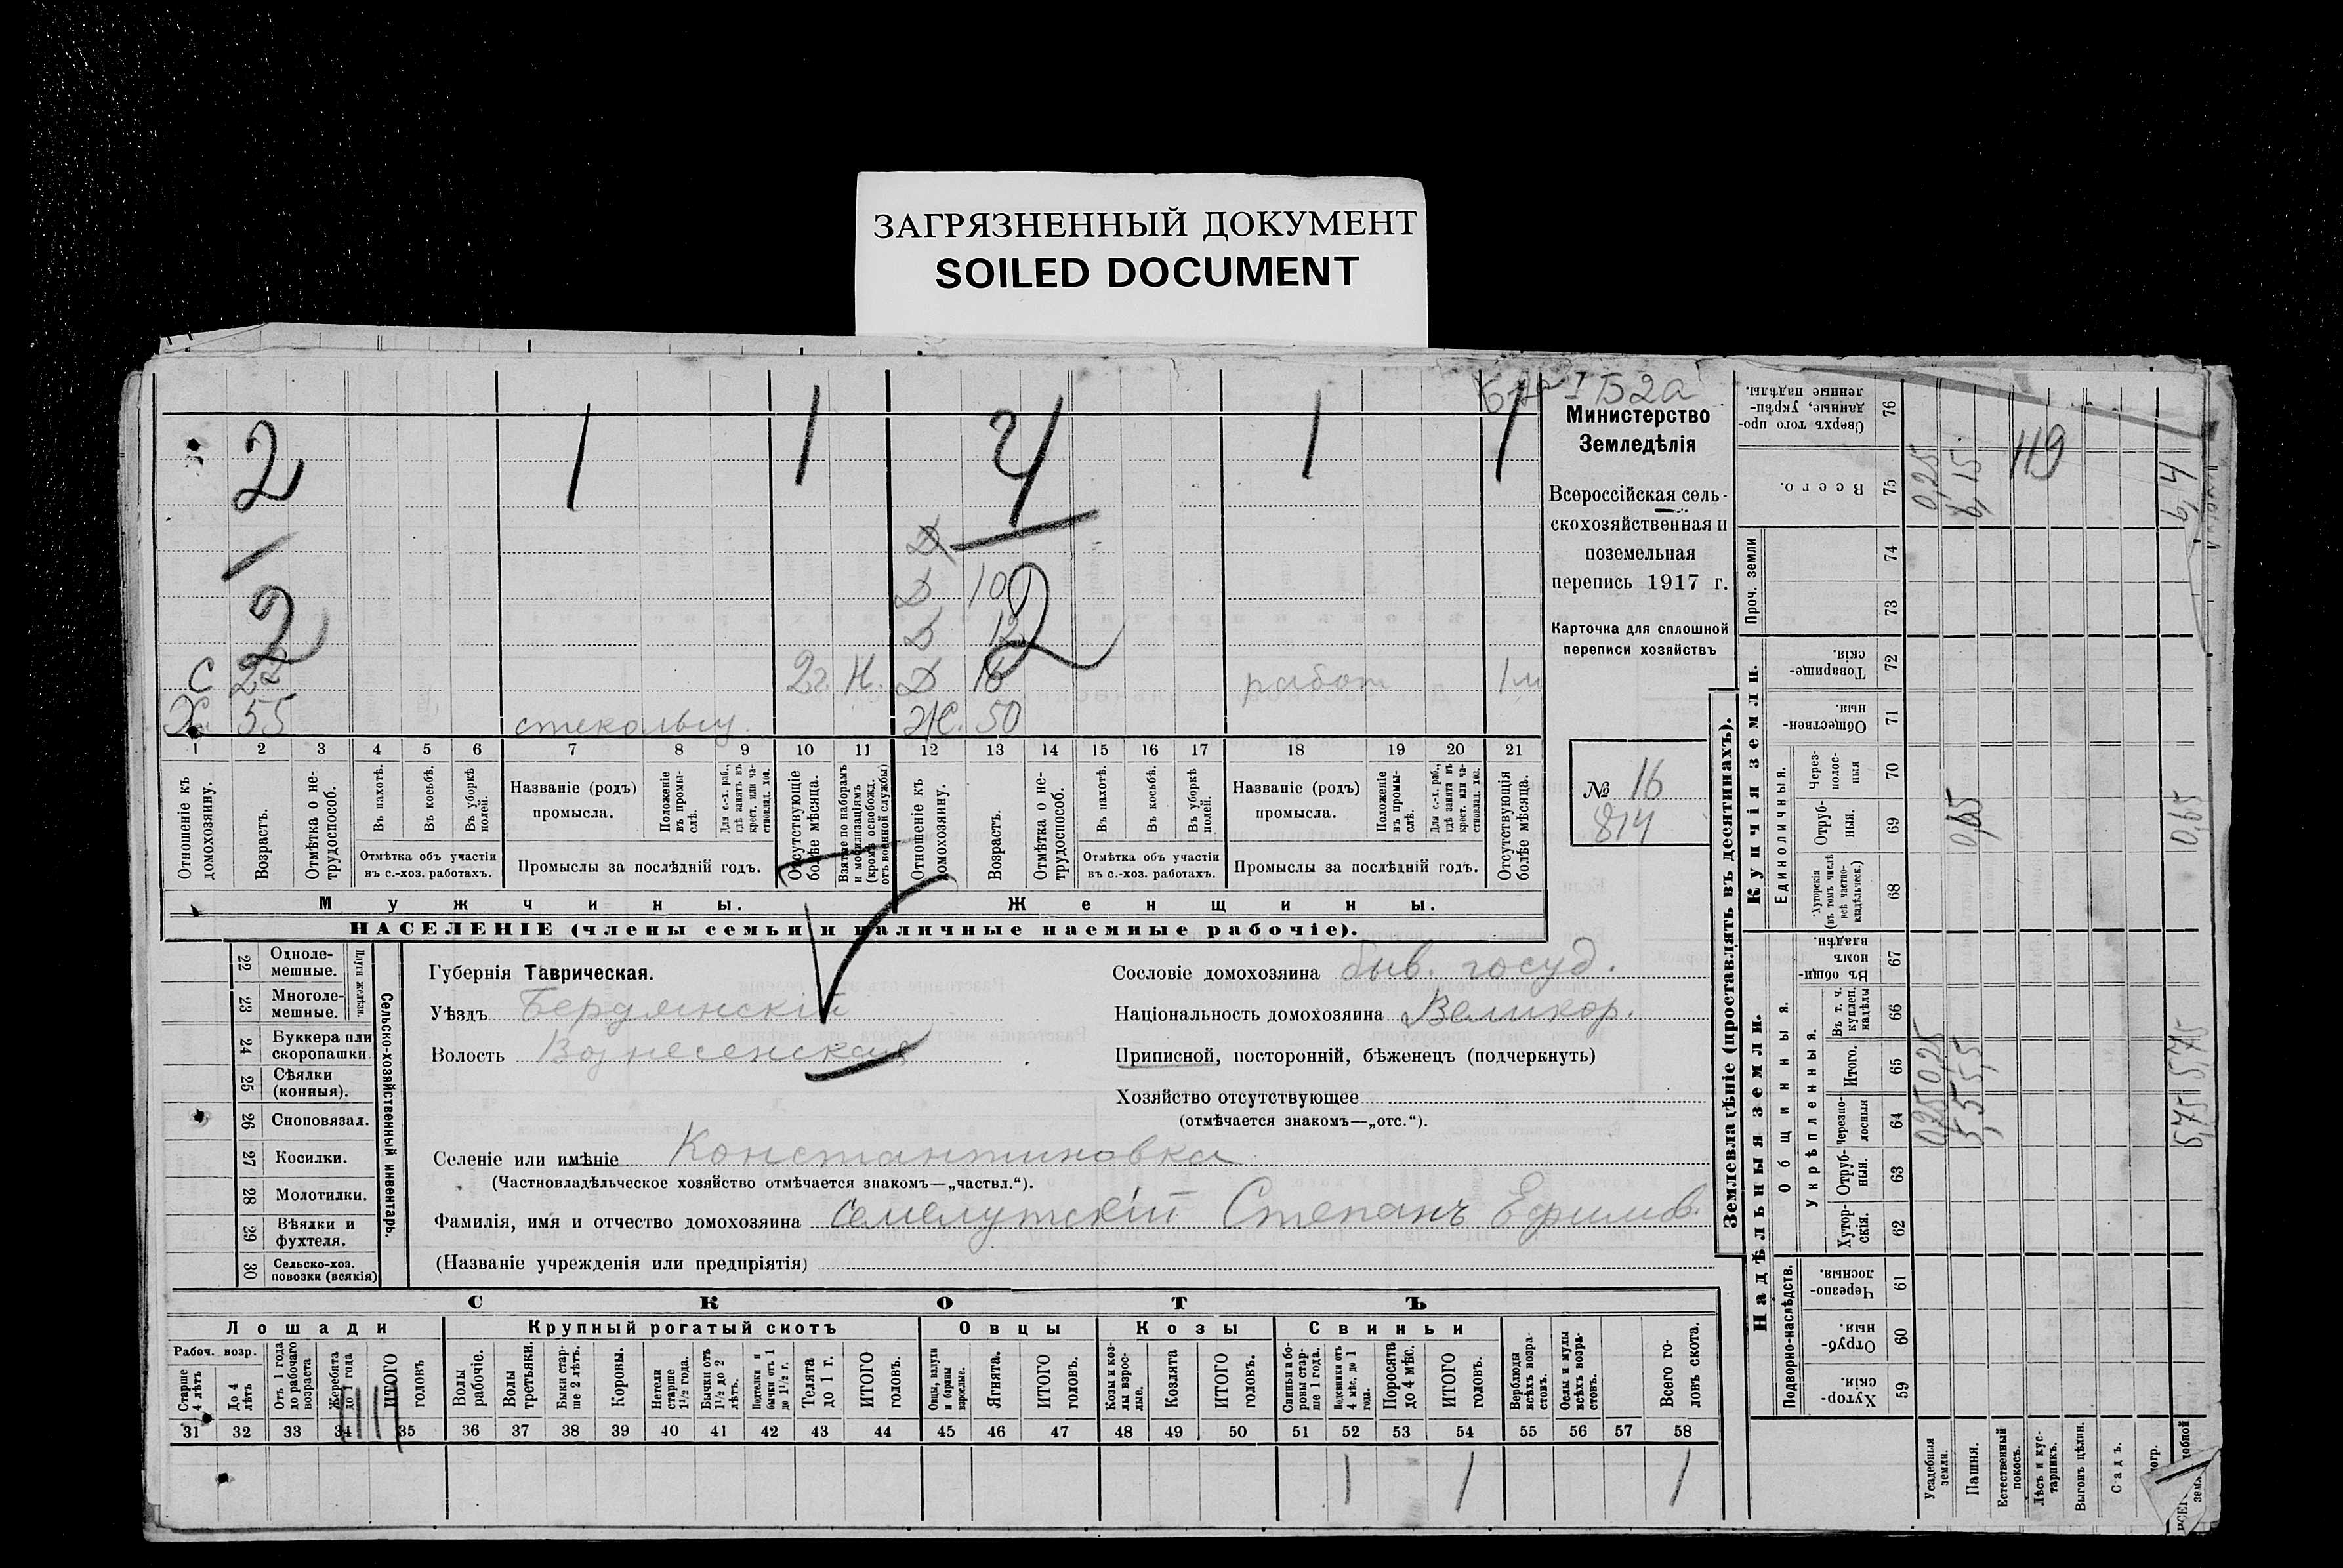 ЗАГРЯЗНЕННЫЙ ДОКУМЕНТ
SOILED DOCUMENT
I Б2а
Министерство
Земледѣлія
Всероссійская сель-
скохозяйственная и
поземельная
перепись 1917 г.
Карточка для сплошной
переписи хозяйствъ
№ 16
814
2 1 1 4 1 1
Д
Д 10
2 Д 12 2
С 22 2г. Н. Д 16 работ 1 м
Х. 55 стекольщ. Ж. 50
1 2 3 4 5 6 7 8 9 10 11 12 13 14 15 16 17 18 19 20 21
Отношеніе къ домохозяину.
Возрастъ.
Отмѣтка о не-трудоспособ.
Въ пахотѣ.
Въ косьбѣ.
Въ уборкѣ полей.
Отмѣтка объ участіи
въ с.-хоз. работахъ.
Названіе (родъ)
промысла.
Положеніе въ промы-слѣ.
Для с.-х. раб., гдѣ занятъ въ крест. или ча-стновлад. хоз.
Промыслы за послѣдній годъ.
Отсутствующіе болѣе мѣсяца.
Взятые по наборамъ и мобилизаціямъ (кромѣ освобожд. отъ военной службы)
Отношеніе къ домохозяину.
Возрастъ.
Отмѣтка о не-трудоспособ.
Въ пахотѣ.
Въ косьбѣ.
Въ уборкѣ полей.
Отмѣтка объ участіи
въ с.-хоз. работахъ.
Названіе (родъ)
промысла.
Положеніе въ промы-слѣ.
Для с.-х. раб., гдѣ занята въ крест. или ча-стновлад. хоз.
Промыслы за послѣдній годъ.
Отсутствующія болѣе мѣсяца.
Мужчины. Женщины.
НАСЕЛЕНІЕ (члены семьи и наличные наемные рабочіе).
22 Одноле-мешные.
23 Многоле-мешные.
Плуги желѣзн.
24 Буккера или скоропашки.
25 Сѣялки (конныя).
26 Сноповязал.
27 Косилки.
28 Молотилки.
29 Вѣялки и фухтеля.
30 Сельско-хоз. повозки (всякія)
Сельско-хозяйственный инвентарь.
Губернія Таврическая.
Уѣздъ Бердянскій
Волость Вознесенская
Сословіе домохозяина быв. госуд.
Національность домохозяина Великор.
Приписной, посторонній, бѣженецъ (подчеркнуть)
Хозяйство отсутствующее
(отмѣчается знакомъ—„отс.“).
Селеніе или имѣніе Константиновка
(Частновладѣльческое хозяйство отмѣчается знакомъ—„частвл.“).
Фамилія, имя и отчество домохозяина Семелутскій Степанъ Ефимов.
(Названіе учрежденія или предпріятія)
СКОТЪ
Лошади Крупный рогатый скотъ Овцы Козы Свиньи
Рабоч. возр.
Старше 4 лѣтъ
До 4 лѣтъ
Отъ 1 года до рабочаго возраста
Жеребята до 1 года
ИТОГО головъ
Волы рабочіе.
Волы третьяки.
Быки стар-ше 2 лѣтъ.
Коровы.
Нетели старше 1½ года.
Бычки отъ 1½ до 2 лѣтъ.
Подтелки и бычки отъ 1 до 1½ г.
Телята до 1 г.
ИТОГО головъ.
Овцы, валухи и бараны взрослые.
Ягнята.
ИТОГО головъ.
Козы и коз-лы взрос-лые.
Козлята
ИТОГО головъ.
Свиньи и бо-ровы стар-ше 1 года.
Подсвинки отъ 4 мѣс. до 1 года.
Поросята до 4 мѣс.
ИТОГО головъ.
Верблюды всѣхъ возра-стовъ.
Ослы и мулы всѣхъ возра-стовъ.
Всего го-ловъ скота.
31 32 33 34 35 36 37 38 39 40 41 42 43 44 45 46 47 48 49 50 51 52 53 54 55 56 57 58
1 1 1
Землевладѣніе (проставлять въ десятинахъ).
Надѣльныя земли. Купчія земли.
Подворно-наслѣдств. Общинныя. Единоличныя. Проч. земли
Укрѣпленныя.
Хутор-скія. 59
Отруб-ныя. 60
Черезпо-лосныя. 61
Хутор-скія. 62
Отруб-ныя. 63
Черезпо-лосныя 64
Итого. 65
Въ т. ч. куплен. надѣлы 66
Въ общин-номъ владѣн. 67
Хуторскія (въ томъ числѣ всѣ частно-владѣльческ.) 68
Отруб-ныя. 69
Через-полос-ныя 70
Обществен-ныя. 71
Товарище-скія. 72
73
74
Всего. 75
Сверхъ того про-данные, укрѣп-ленные надѣлы. 76
Усадебныя земли. 0,25 0,25 0,25
Пашня. 5,5 5,5 0,65 6,15
Естественный покосъ.
Лѣсъ и кус-тарникъ.
Выгонъ цѣлин.
Садъ.
5,75 5,75 0,65 6,4
119